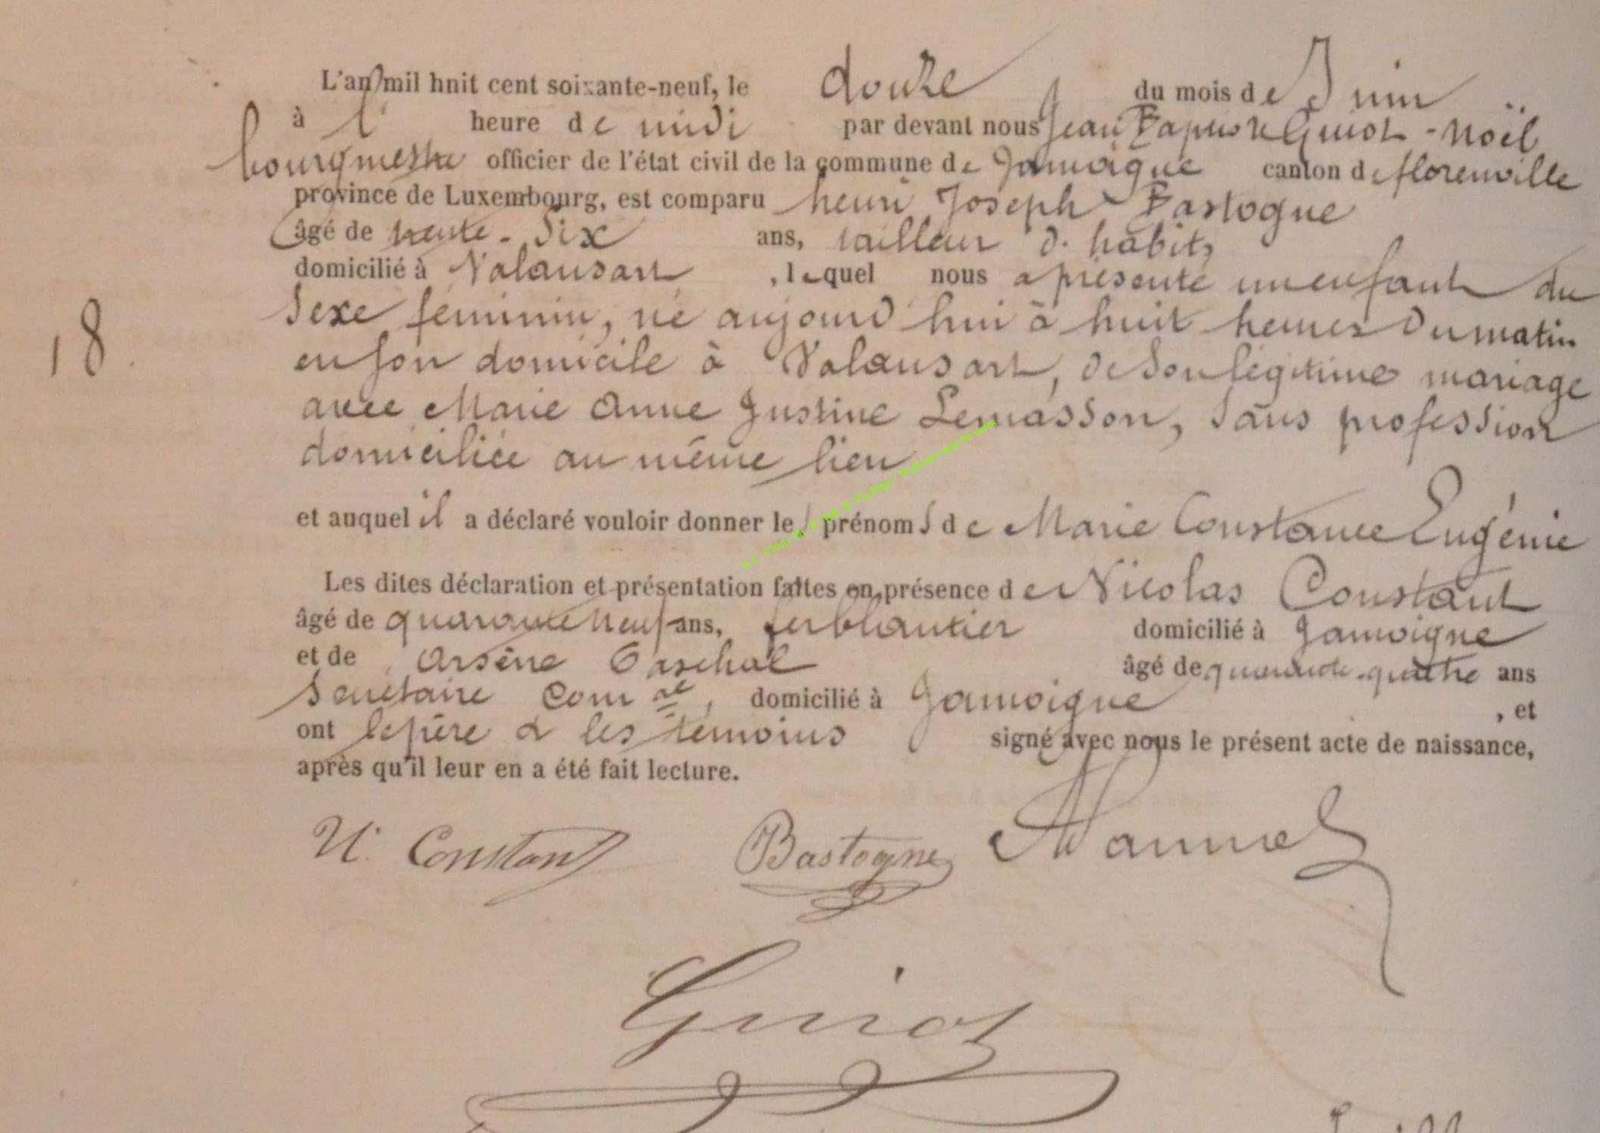 L'an mil huit cent soixante-neuf, le douze du mois de Juin
à l' heure de midi par devant nous Jean Baptiste Guiot-Noël
bourgmestre officier de l'état civil de la commune de Jamoigne canton de florenville
province de Luxembourg, est comparu henri Joseph Bastogne
âgé de trente-Six ans, tailleur d'habits
domicilié à Valansart, lequel nous a présenté un enfant du
Sexe féminin, né aujourd'hui à huit heures du matin
en son domicile à Valansart, de Son légitime mariage
avec Marie Anne Justine Lemasson, Sans profession
domiciliée au même lieu
18.
et auquel il a déclaré vouloir donner les prénoms de Marie Constance Eugénie
Les dites déclaration et présentation faites en présence de Nicolas Constant
âgé de quarante neuf ans, ferblantier domicilié à Jamoigne
et de Arsène Paschal âgé de quarante-quatre ans
Secrétaire Com al, domicilié à Jamoigne, et
ont le père & les témoins signé avec nous le présent acte de naissance,
après qu'il leur en a été fait lecture.
N. Constant Bastogne
Guiot